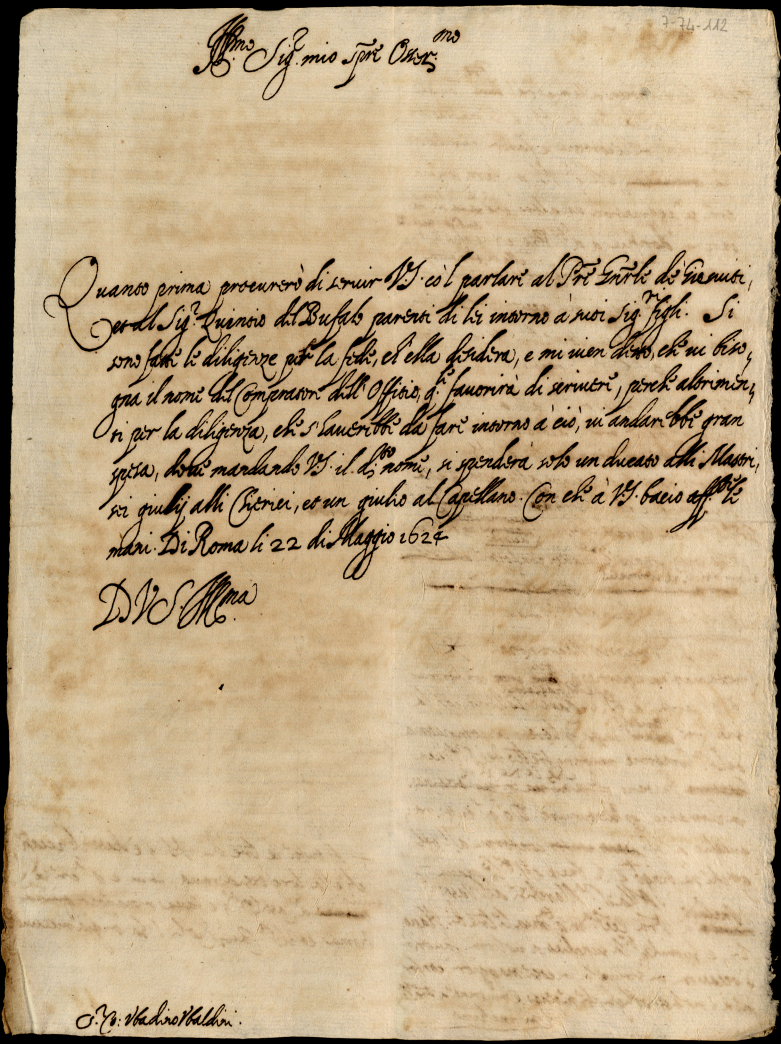 7-74-112
Ill.mo Sig.r mio p̄re Osser.mo
Quanto prima procurerò di servir VS. cōl parlare al P̄re Gn̄rle de Giesuiti,
et al Sig.r Quintio del Bufalo parenti di lei intorno à suoi Sig.ri figli. Si
sono fatte le diligenze per la fede, ch'ella desidera, e mi vien detto, che vi biso,
gna il nome del Compratore dell'Offitio, q.le favorirà di scrivere, perche altrimen,
ti per la diligenza, che s'haverebbe da fare intorno à ciò, vi andarebbe gran
spesa, dove mandando VS. il d.to nome, si spenderà solo un ducato alli Mastri,
sei giulij alli Cherici, et un giulio al Capellano. Con che à VS. bacio aff.te le
mani. Di Roma li 22 di Maggio 1624
D VS. Ill.ma
Ubaldino Ubaldini.